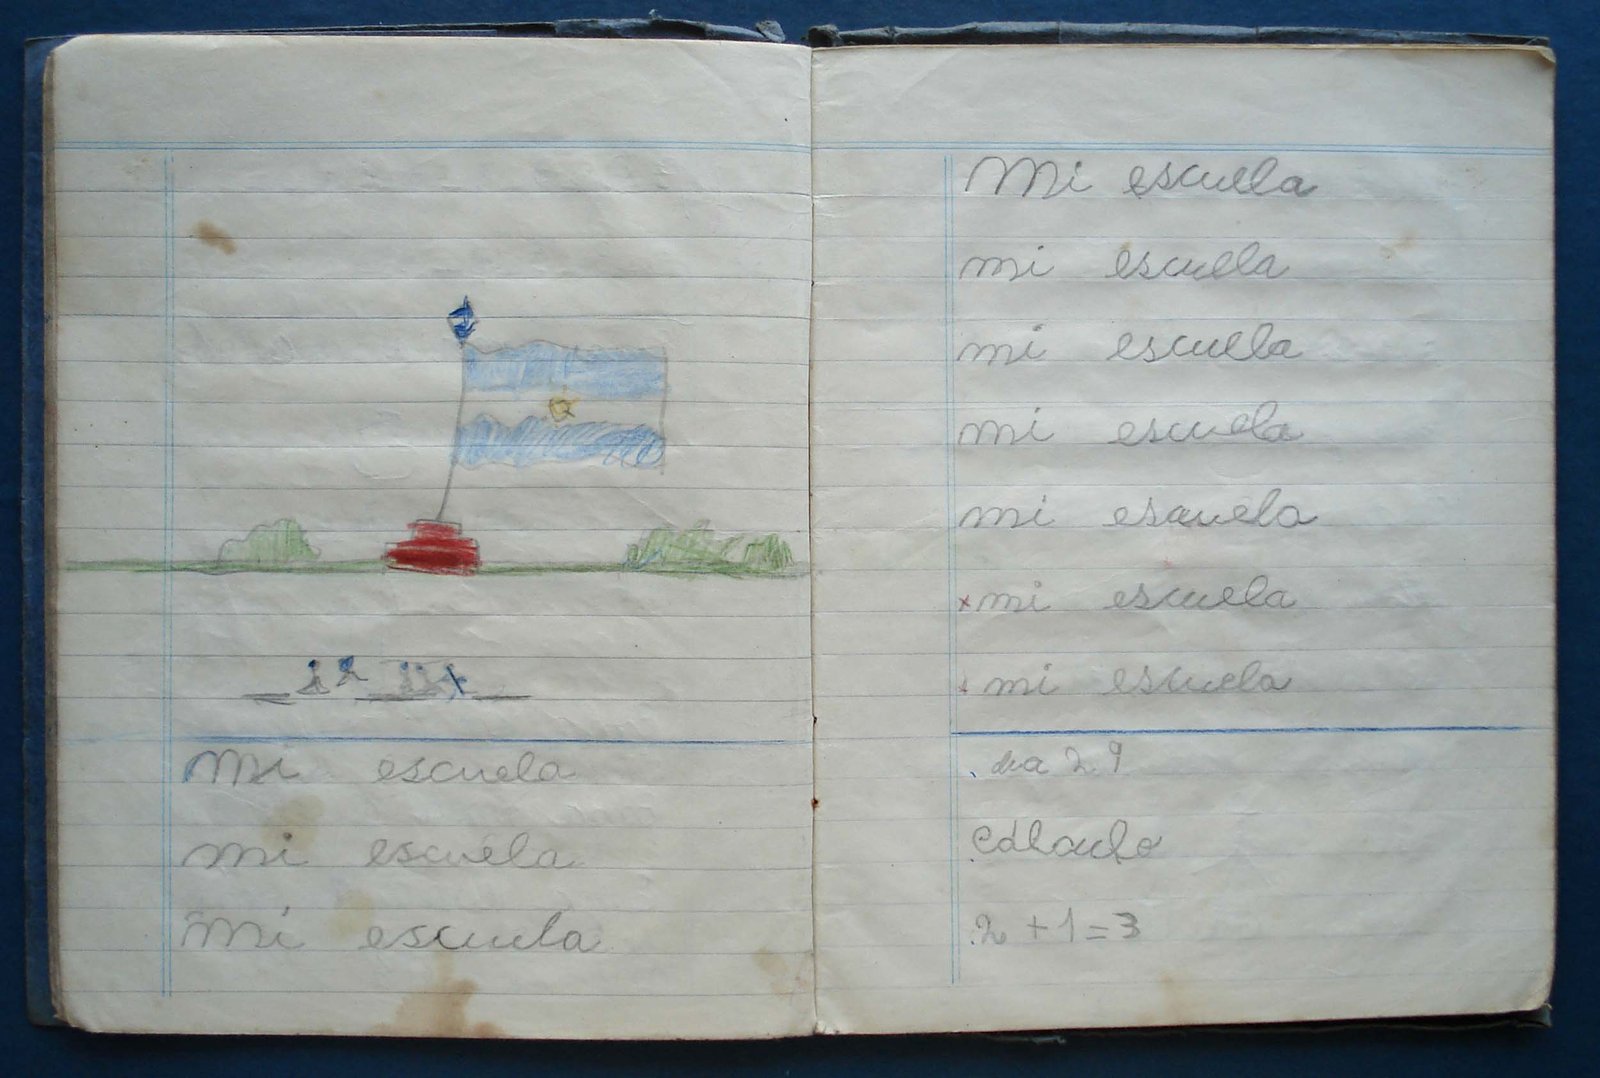 Mi escuela
mi escuela
mi escuela
Mi escuela
mi escuela
mi escuela
mi escuela
mi escuela
mi escuela
mi escuela
dia 29
cálculo
2 + 1 = 3